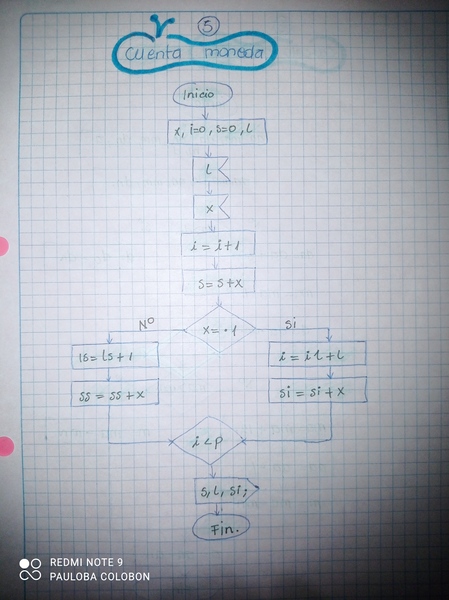 5
Cuenta moneda
Inicio
x, i=0, s=0, L
L
x
i = i+1
s = s+x
x = .1
NO
si
ls = ls + 1
i = i l + L
ss = ss + x
si = si + x
i < p
s, L, si;
Fin.
REDMI NOTE 9
PAULOBA COLOBON